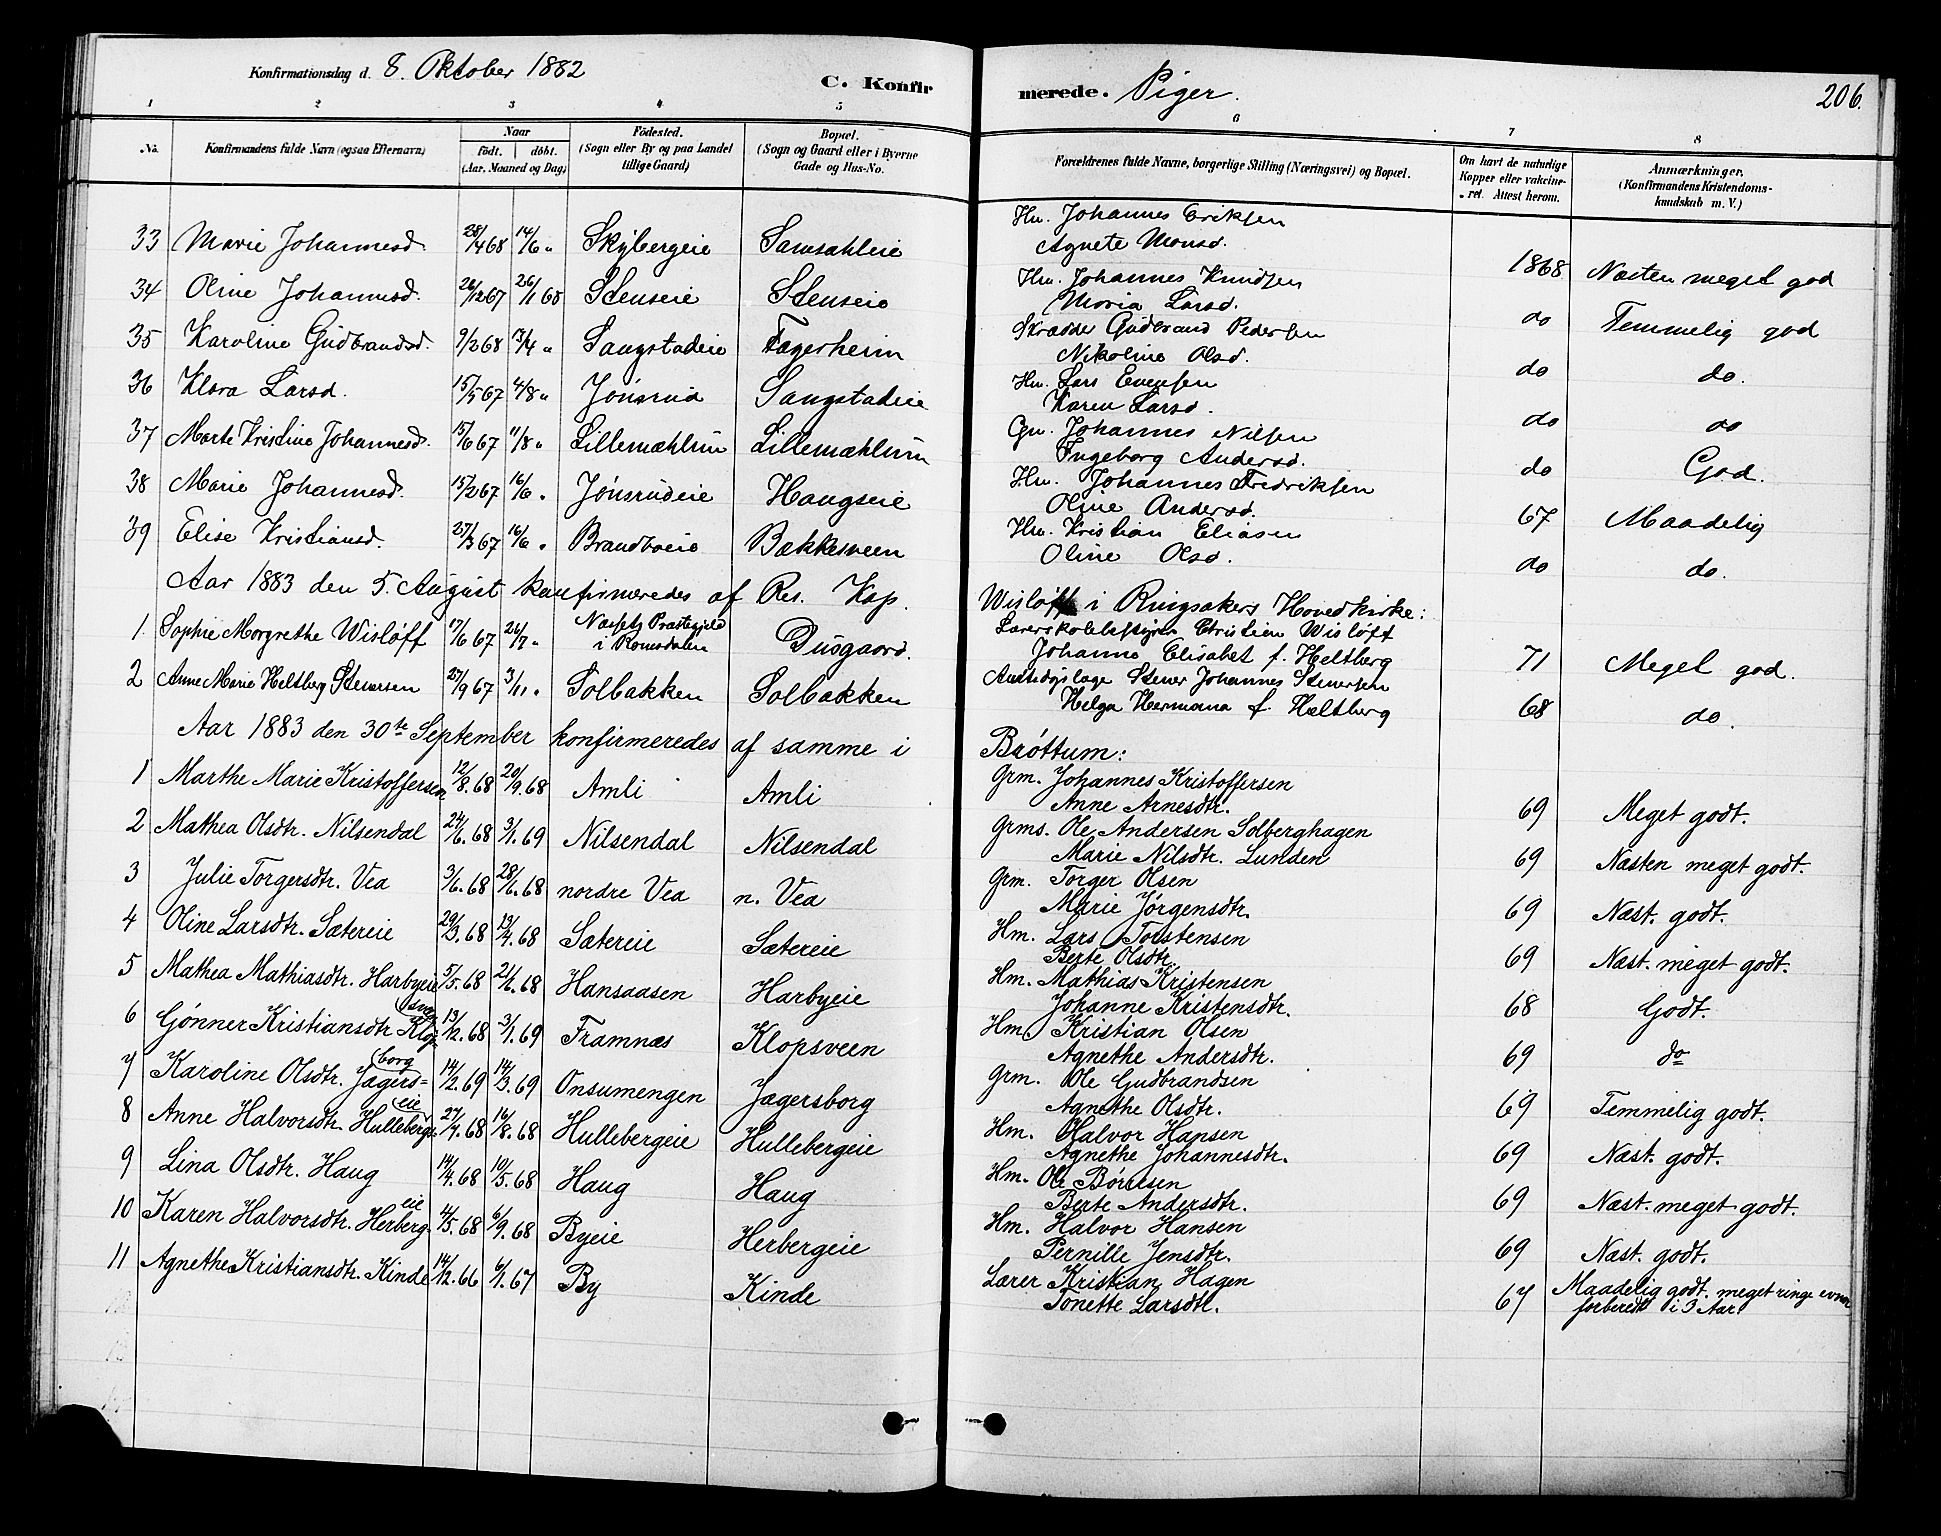 Konfirmationsdag d. 8. Oktober 1882 C. Konfirmerede. Piger. 206.
1 2 3 4 5 6 7 8
No. Konfirmandens fulde Navn (ogsaa Efternavn) Naar født. døbt. (Aar, Maaned og Dag) Fødested. (Sogn eller By og paa Landet tillige Gaard) Bopæl. (Sogn og Gaard eller i Byerne Gade og Hus-No. Forældrenes fulde Navne, borgerlige Stilling (Næringsvei) og Bopæl. Om havt de naturlige Kopper eller vakcineret. Attest herom. Anmærkninger. (Konfirmandens Kristendomskundskab m. V.)
33 Marie Johannesd. 28/4 68 14/6 " Skybergeie Samsahleie Hu. Johannes Eriksen Agnete Monsd. 1868 Næsten meget god
34 Oline Johannesd. 26/12 67 26/1 68 Stenseie Stenseie Hu. Johannes Knudsen Maria Larsd. do Temmelig god
35 Karoline Gudbrandsd. 9/2 68 13/4 " Saugstadeie Fagerheim Skrædder Gudbrand Pedersen Nikoline Olsd. do do.
36 Klara Larsd. 15/5 67 4/8 " Jønsrud Saugstadeie Hu. Lars Evensen Karen Larsd. do do
37 Marte Kristine Johannesd. 15/6 67 11/8 " Lillemæhlum Lillemæhlum Gu. Johannes Nilsen Ingeborg Andersd. do God.
38 Marie Johannesd. 15/2 67 16/6 " Jønsrudeie Haugseie Hu. Johannes Fredriksen Oline Andersd. 67 Maadelig
39 Elise Kristiansd. 27/3 67 16/6 " Brandboeie Bækkesveen Hu. Kristian Eliasen Oline Olsd. do do.
Aar 1883 den 5. August konfirmeredes af Res. Kap. Wisløff i Ringsakers Hovedkirke:
1. Sophie Margrethe Wisløff 17/6 67 26/7 " Næssets Præstegjeld i Romsdalen Dusgaard. Lærerskolebestyrer Christian Wisløff Johanne Elisabet f. Heltberg 71 Meget god.
2 Anne Marie Heltberg Stenersen 27/9 67 3/11 " Solbakken Solbakken Stener Johannes Stenersen Helga Hermana f. Heltberg 68 do.
Aar 1883 den 30te September konfirmeredes af samme i Brøttum:
1 Marthe Marie Kristoffersen 12/8. 68 20/9. 68 Amli Amli Grm. Johannes Kristoffersen Anne Arnesdtr. 69 Meget godt.
2 Mathea Olsdtr. Nilsendal 24/6. 68 3/1. 69 Nilsendal Nilsendal Grms. Ole Andersen Solberghagen Marie Nilsdtr. Lunden 69 Næsten meget godt.
3 Julie Torgersdtr. Vea 3/6. 68 28/6. 68 nordre Vea n. Vea Grm. Torger Olsen Marie Jørgensdtr. 69 Næst. godt.
4 Oline Larsdtr. Sætereie 29/3. 68 13/4. 68 Sætereie Sætereie Hm. Lars Torstensen Berte Olsdtr. 69 Næst. meget godt.
5 Mathea Mathiasdtr. Harbyeie 5/5. 68 21/6. 68 Hansaasen Harbyeie Hm. Mathias Kristensen Johanne Kristensdtr. 68 Godt.
6 Gønner Kristiansdtr. 13/12. 68 3/1. 69 Framnæs Klopsveen Hm. Kristian Olsen Agnethe Andersdtr. 69 do
7 Karoline Olsdtr. Jægersborg 14/2. 69 14/3. 69 Onsumengen Jægersborg Grm. Ole Gudbrandsen Agnethe Olsdtr. 69 Temmelig godt.
8 Anne Halvorsdtr. Hullebergeie 27/4. 68 16/8. 68 Hullebergeie Hullebergeie Hm. Halvor Hansen Agnethe Johannesdtr. 69 Næst. godt.
9 Lina Olsdtr. Haug 14/4. 68 10/5. 68 Haug Haug Hm. Ole Børresen Berte Andersdtr. 69 Næst. meget godt.
10 Karen Halvorsdtr. Herbergeie 4/5. 68 6/9. 68 Byeie Herbergeie Hm. Halvor Hansen Pernille Jensdtr. 69 Næst. godt.
11 Agnethe Kristiansdtr. Kinde 14/12. 66 6/1. 67 By Kinde Lærer Kristian Hagen Tonette Larsdtr. 67 Maadelig godt. meget ringe evner forberedt i 3 Aar.